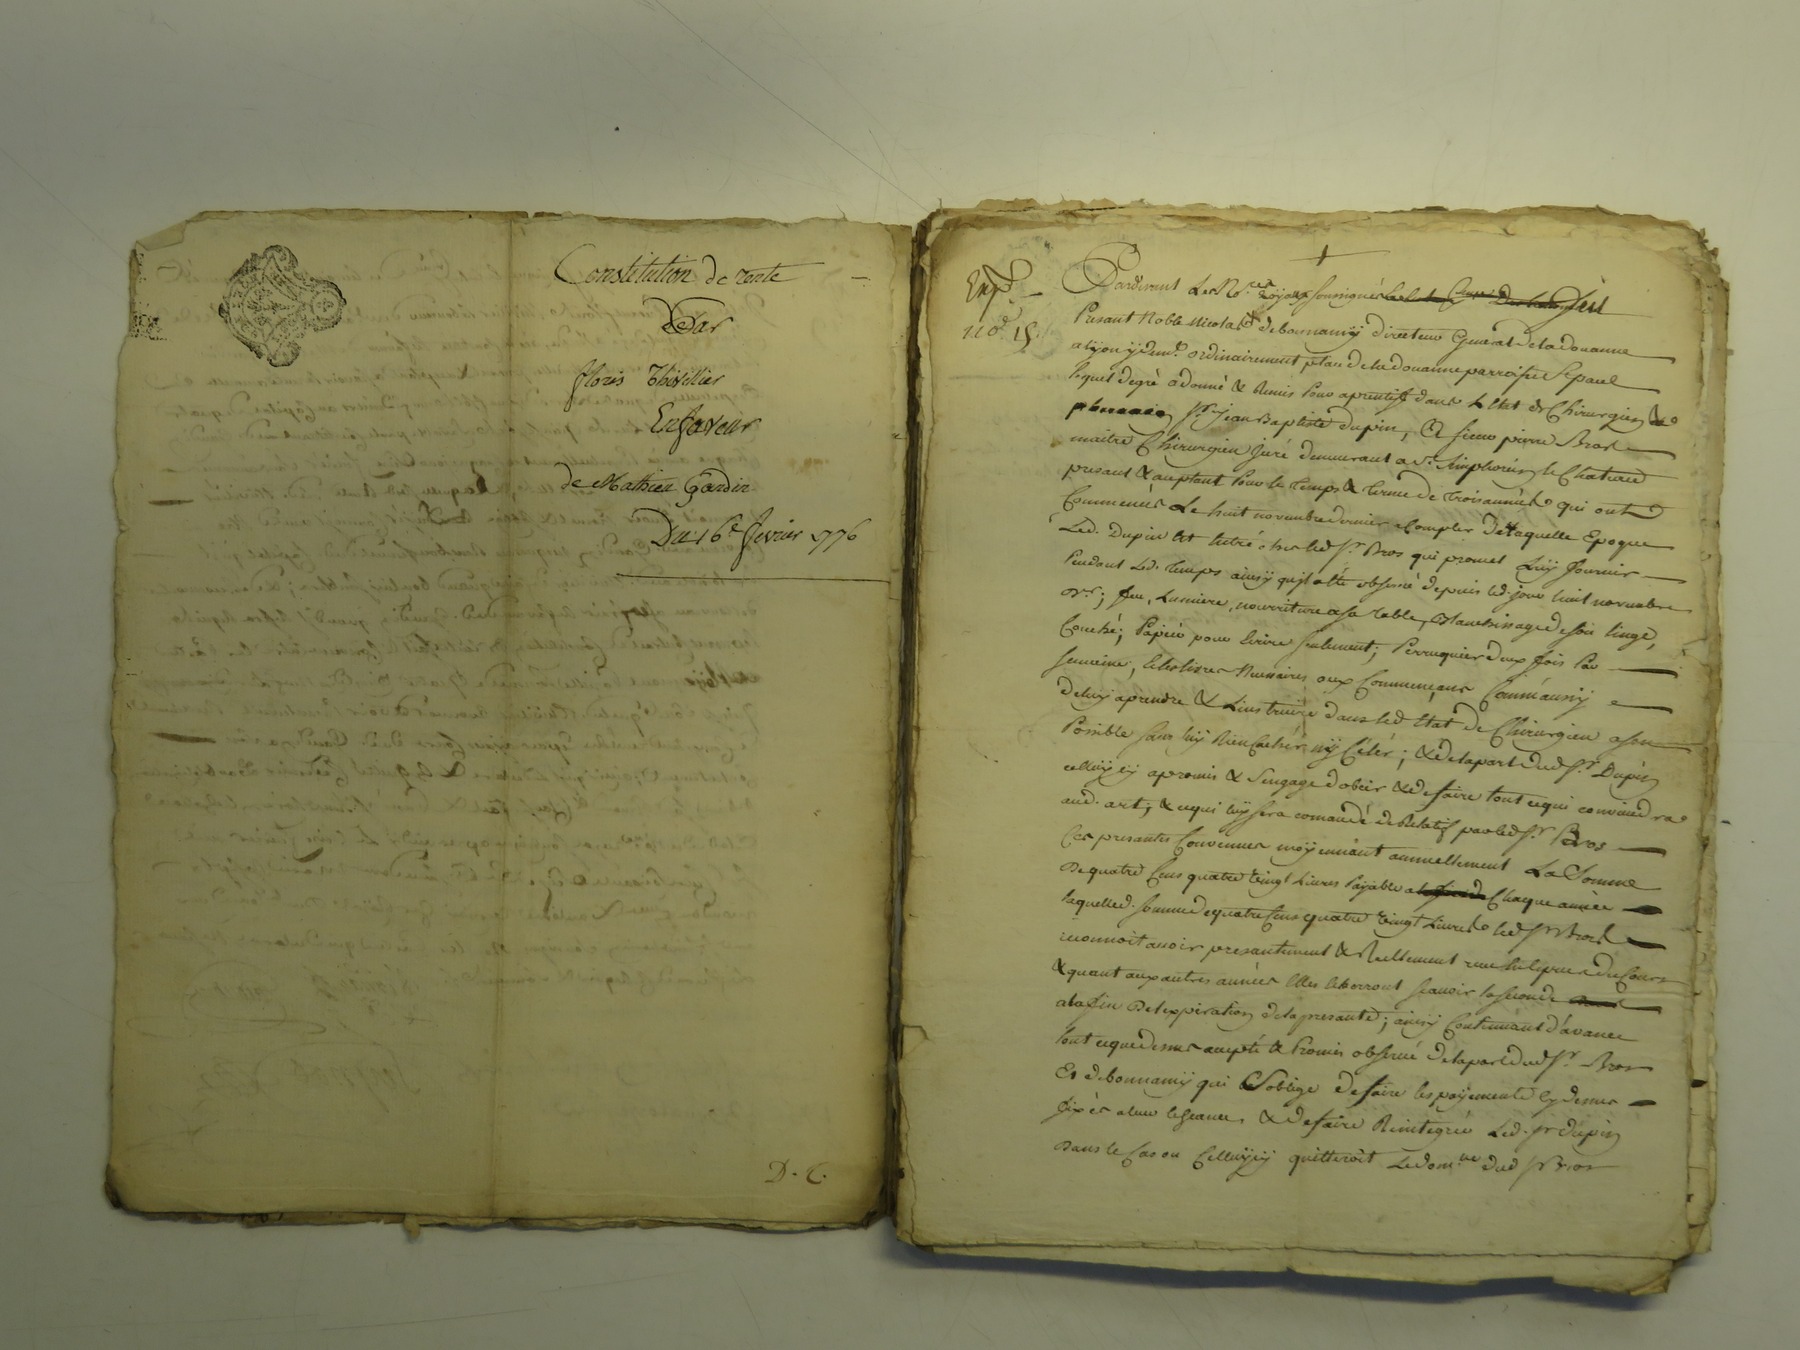 Constitution de rente
Par
floris Thivillier
Enfaveur
de Mathieu Gardin
Du 16e fevrier 1776
D. C.
Expd.
110d. 15
Pardevant Les No.res Royaux soussignés
Presant Noble Nicolas debonnamy directeur General deladouanne
alyon y dem.t ordinairement place deladouanne parroisse St paul
lequel degré adonné & Remis pour aprentif dans L'Etat de Chirurgien &
Sr. jean Baptiste dupin, A sieur pierre Bros
maitre Chirurgien juré demeurant a St. simphorien le Chateau
presant & aceptant pour le temps & terme de troisannées qui ont
Commencés Le huit novembre dernier acompter delaquelle Epoque
Led. Dupin Est Entré chez led Sr. Bros qui promet Luy fournir
Pendant Led. temps ainsy qu'il aété observé depuis led. jour huit novembre
d.er; feu, Lumiere, nourriture asa table, Blanchissage deson linge,
Couché; Papier pour Ecrire seulement; Perruquier deux fois Par
semeine; leslivres necessaires aux Commençans Commeaussy
deluy aprendre & L'instruire dans led Etat de Chirurgien ason
Possible sans luy Rien Cacher ny Celer; & delapart dud Sr. Dupin
celluycy apromis & s'engage d'obeir & defaire tout cequi conviendra
aud. art; & cequi luy sera comandé de Relatif parled Sr. Bros
Ces presantes Convenues moyennant annuellement La Somme
De quatre Cens quatre vingt Livres Payable Chaque année
laquelled. somme dequatre Cens quatre vingt Livres led Sr Bros
reconnoit avoir presantement & Reellement receu En Especes du Cours
& quant aux autres années Elles seront sçavoir la seconde
ala fin De l'expiration delapresante; ainsy Continuant d'avance
tout ceque dessus accepté & Promis observé delapart dud Sr. Bros
Et debonnamy qui s'oblige defaire les payements cy dessus
fixés aleur Echeance, & defaire Reintegrer Led. Sr dupin
Dans le Cas ou Celluycy quitteroit Ledom.lle dud Sr Bros